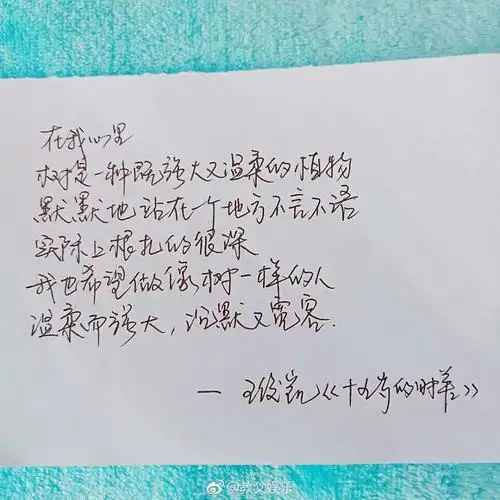 在我心里
树是一种既强大又温柔的植物
默默地站在一个地方不言不语
实际上根扎的很深
我也希望做像树一样的人
温柔而强大，沉默又宽容.
— 王俊凯《十五岁的时差》
@教父娱乐